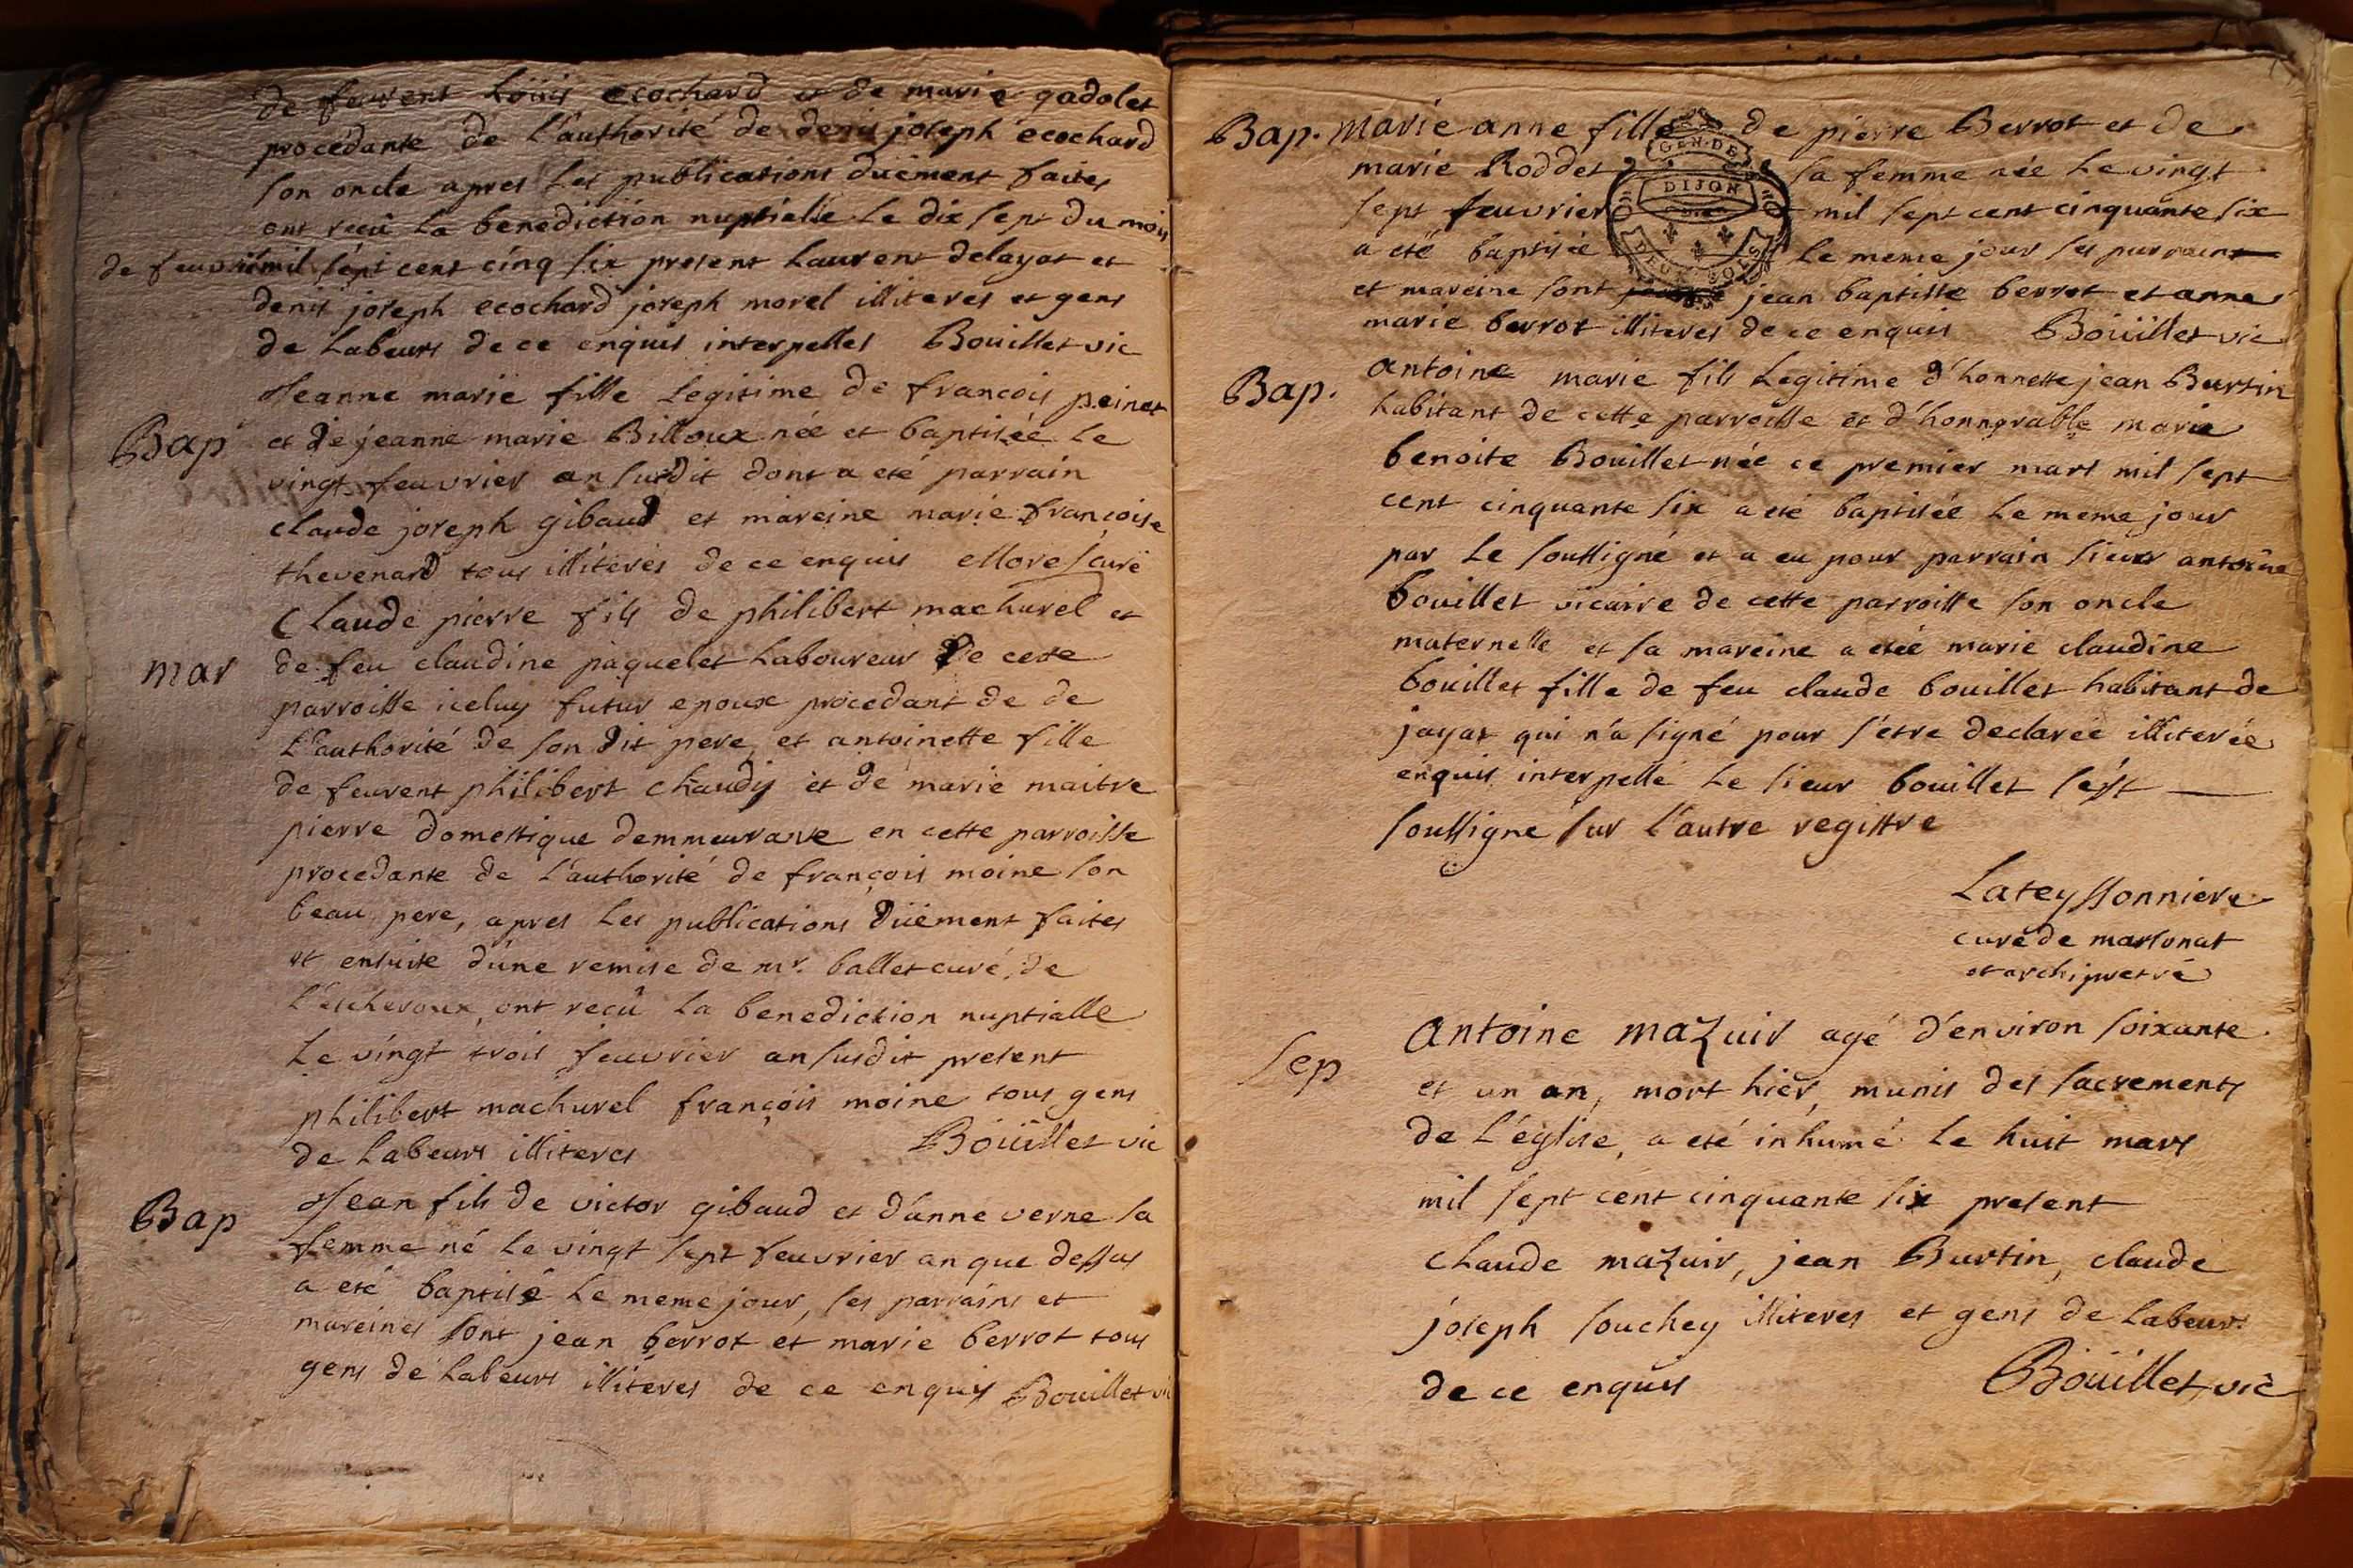 de feurent Loüis ecochard et de marie gadolet
procédante de l'authorité de denis joseph ecochard
son oncle apres les publications düement faites
ont reçû la benediction nuptialle le dix sept du mois
de feuvrier mil sept cent cinq six present Laurent delayat et
denis joseph ecochard joseph morel illiteres et gens
de Labeurs de ce enquis interpelles Bouillet vic
Jeanne marie fille Legitime de francois peinet
Bap et de jeanne marie Billoux née et baptisée le
vingt feuvrier an susdit dont a eté parrain
claude joseph gibaud et mareine marie francoise
thevenard tous illiteres de ce enquis
Claude pierre fils de philibert machurel et
mar de feu claudine paquelet Laboureur de cette
parroisse iceluy futur epoux procedant de de
L'authorité de son dit pere, et antoinette fille
de feurent philibert chaudy et de marie maitre
pierre domestique demmeurante en cette parroisse
procedante de l'authorité de françois moine son
beau pere, apres les publications düement faites
et ensuite d'une remise de mr. ballet curé de
L'escheroux, ont reçû la benediction nuptialle
Le vingt trois feuvrier an susdit present
philibert machurel françois moine tous gens
de Labeurs illiteres Boüillet vic
Bap Jean fils de victor gibaud et d'anne verne sa
femme né le vingt sept feuvrier an que dessus
a eté baptisé le meme jour, ses parrains et
mareines sont jean berrot et marie berrot tous
gens de Labeurs illiteres de ce enquis Bouillet vic
Bap. marie anne fille de pierre Berrot et de
marie Roddet sa femme née le vingt
sept feuvrier mil sept cent cinquante six
a eté baptisée le meme jour ses parrains
et mareine sont jean baptiste berrot et anne
marie berrot illiteres de ce enquis Boüillet vic
GEN. DE
DIJON
DEUX SOLS
Bap. Antoine marie fils Legitime d'honnette jean Burtin
habitant de cette parroisse et d'honnorable marie
benoite Bouillet née ce premier mars mil sept
cent cinquante six a eté baptisée le meme jour
par le soussigné et a eu pour parrain sieur antoine
bouillet vicaire de cette parroisse son oncle
maternelle et sa mareine a etée marie claudine
bouillet fille de feu claude bouillet habitant de
jayat qui n'a signé pour s'étre declarée illiterée
enquis interpellé le sieur bouillet s'éyt
soussigne sur l'autre registre
Lateyssonniere
curé de marsonat
et archipretre
Sep Antoine mazuir agé d'environ soixante
et un an, mort hier, munis des sacrements
de L'église, a eté inhumé le huit mars
mil sept cent cinquante six present
claude mazuir, jean Burtin, claude
joseph souchey illiteres et gens de labeurs
de ce enquis Boüillet, vic